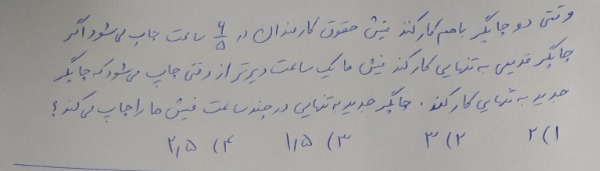 وقتی دو چاپگر باهم کار کنند فیش حقوق کارمندان در ۶/۵ ساعت چاپ می‌شود اگر
چاپگر قدیمی به تنهایی کار کند فیش ها یک ساعت دیرتر از وقتی چاپ می‌شود که چاپگر
جدید به تنهایی کار کند. چاپگر جدید به تنهایی در چند ساعت فیش ها را چاپ می کند؟
۱) ۲ ۲) ۳ ۳) ۱,۵ ۴) ۲,۵